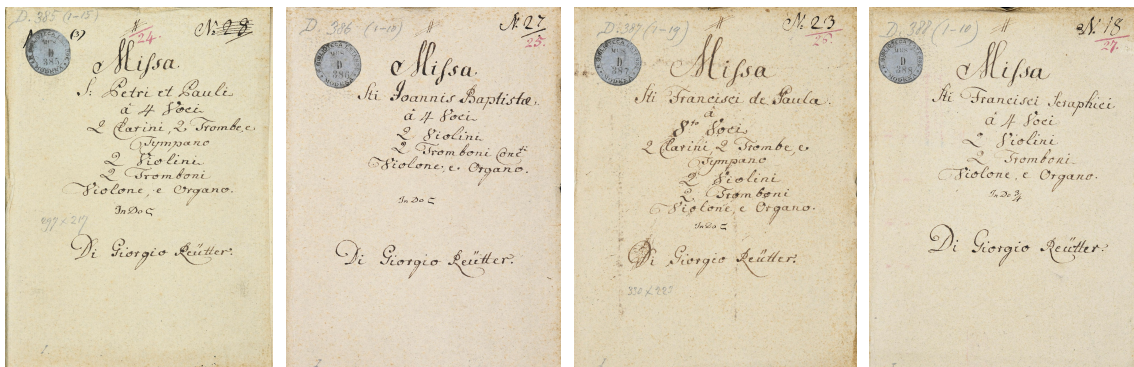 D. 385 (1-15)
No. 28
24.
MUS.
D
385
Missa
S. Petri et Pauli
à 4 Voci
2 Clarini, 2 Trombe, e
Tympano
2 Violini
2 Tromboni
Violone, e Organo.
In Do C
297 x 217
Di Giorgio Reütter.
D. 386 (1-18)
N. 27
25.
MUS.
D
386
Missa
Sti Joannis Baptistæ
à 4 Voci
2 Violini
2 Tromboni Conc.ti
Violone, e Organo.
In Do C
Di Giorgio Reütter.
D. 387 (1-19)
No. 23
MUS.
D
387
Missa
Sti Francisci de Paula
à
8to Voci
2 Clarini, 2 Trombe, e
Tympano
2 Violini
2 Tromboni
Violone, e Organo.
In Do C
Di Giorgio Reütter.
330 x 225
D. 388 (1-18)
N. 18
27.
MUS.
D
388
Missa
Sti Francisci Seraphici
à 4 Voci
2 Violini
2 Tromboni
Violone, e Organo.
In Do 3/4
Di Giorgio Reütter.